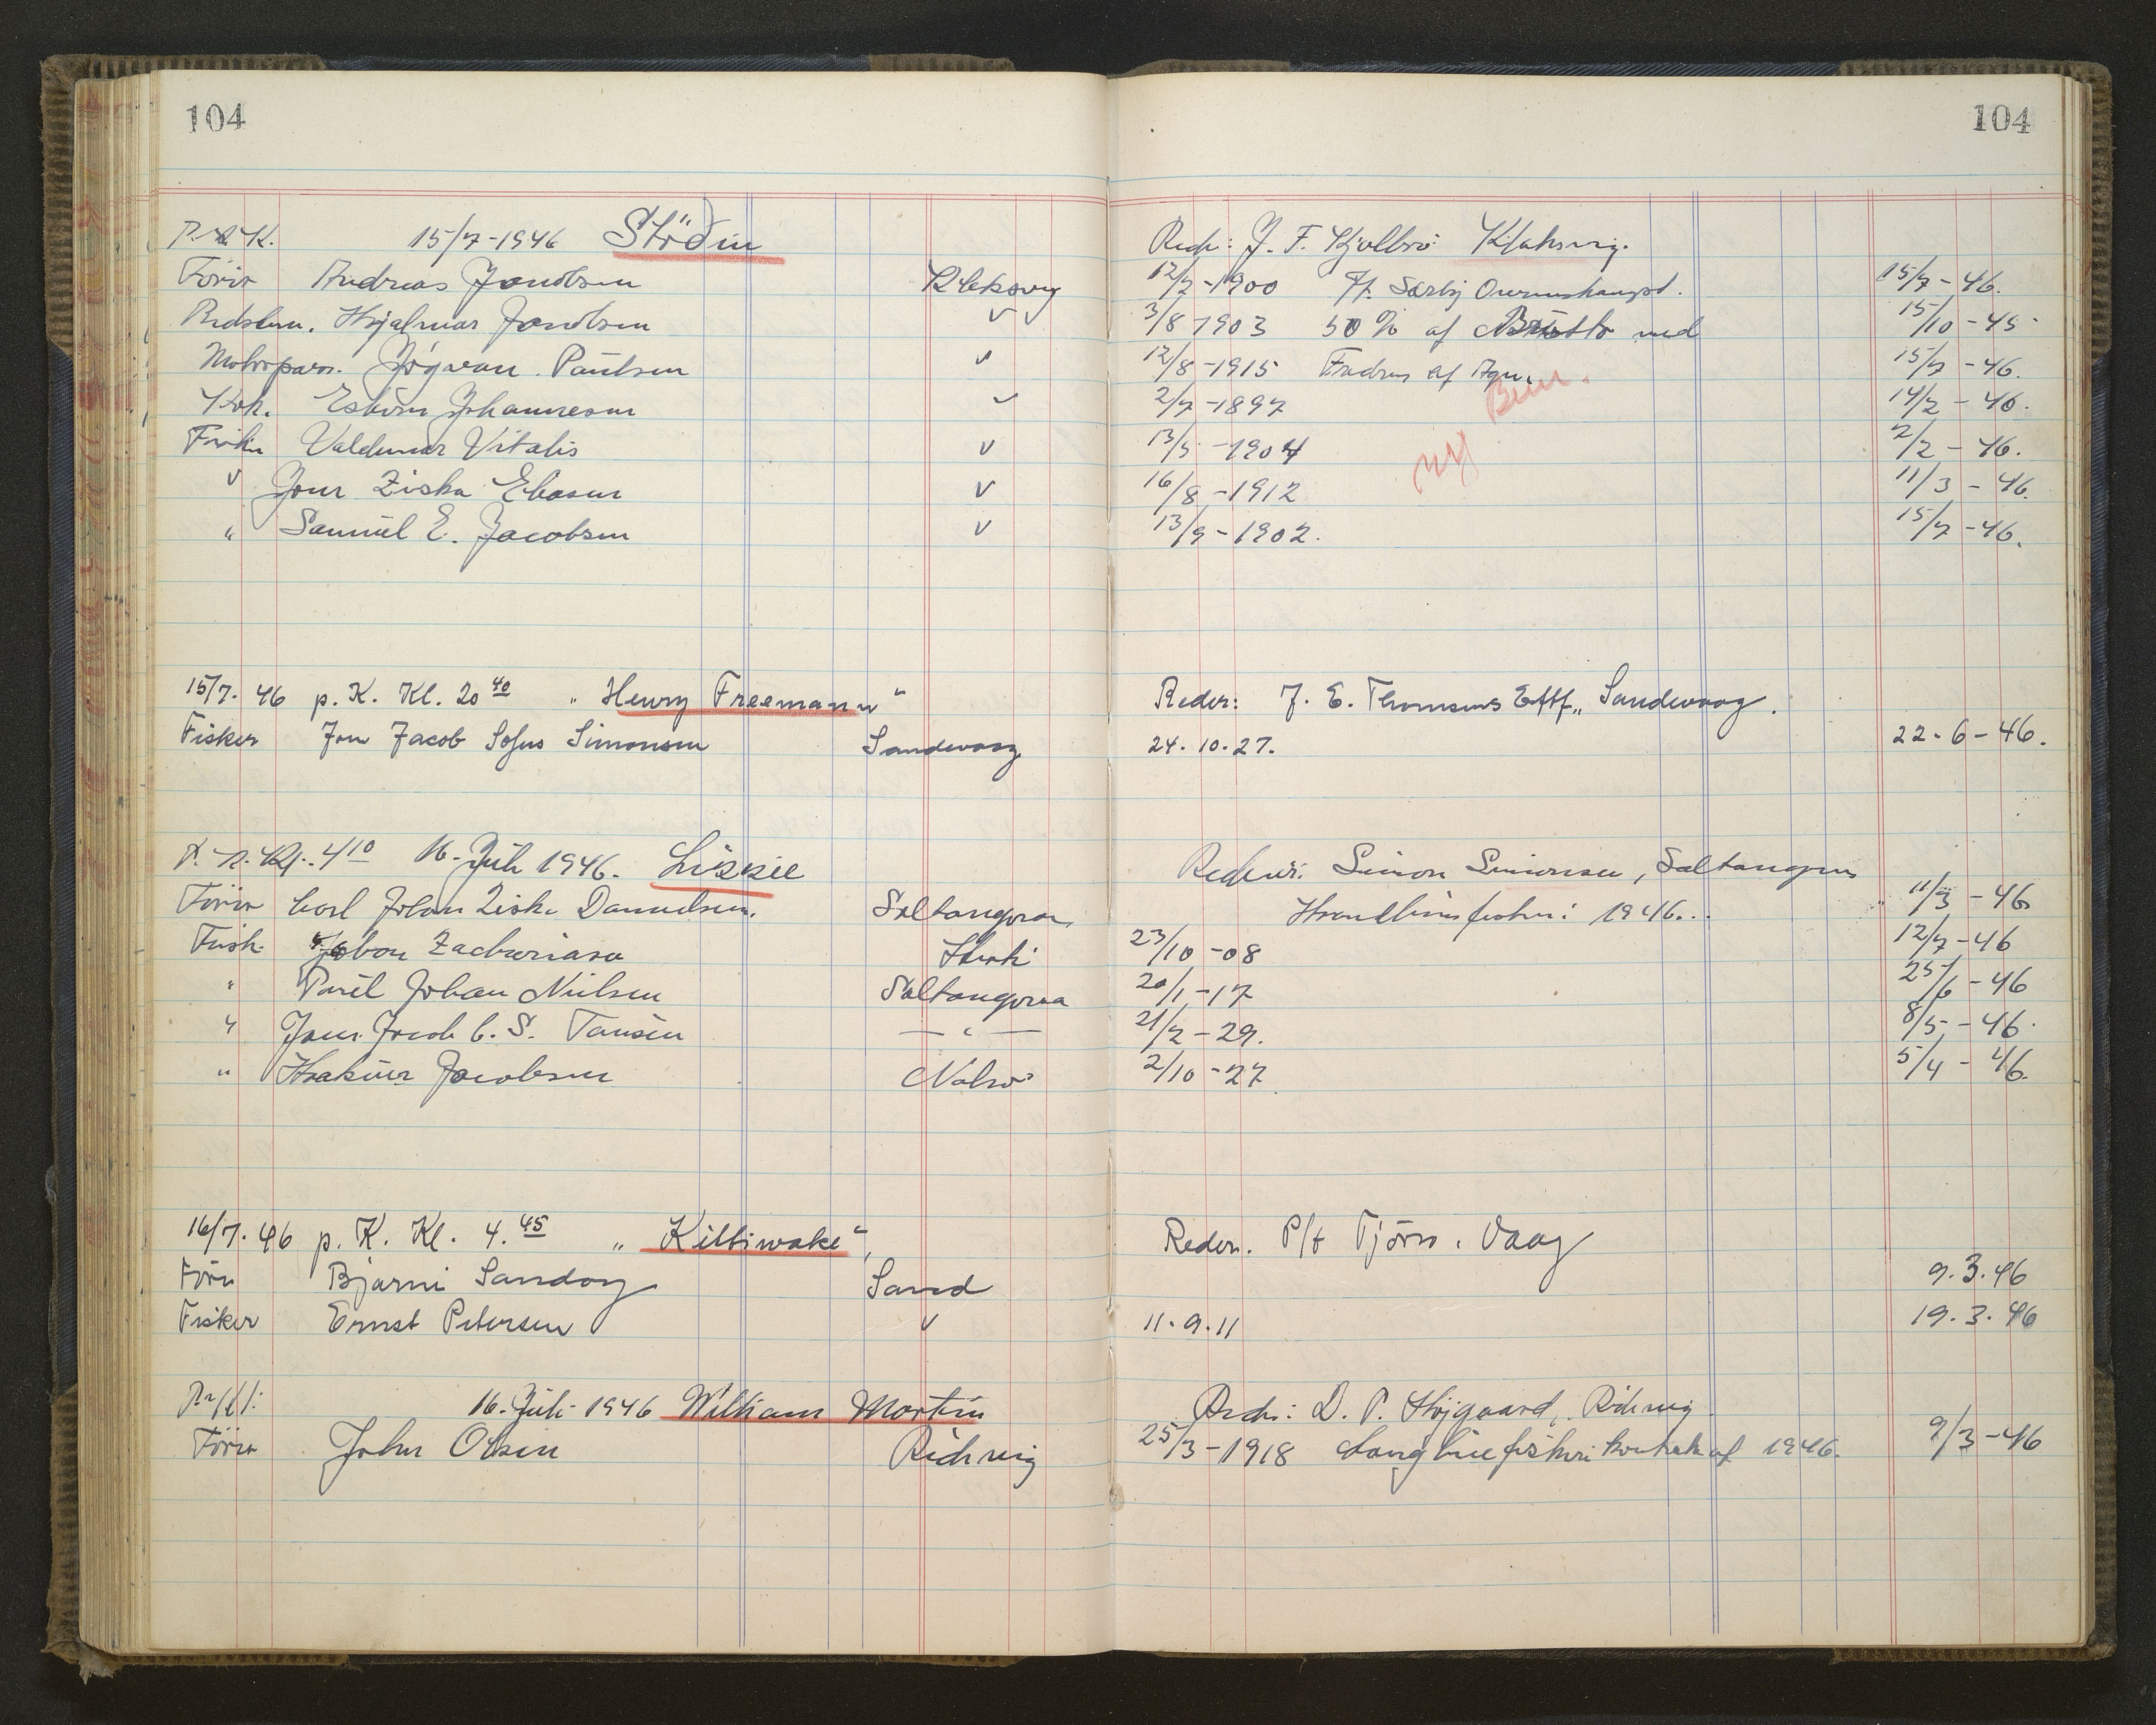 104
104
15/7-1946 Stödin
Förer Andreas Jacobsen Klaksvig
Bedstem. Hjalmar Jacobsen v
Motorpass. Jógvan Paulsen v
Kok. Johannesen v
Fisker Valdemar Vitalis v
v Ziska v
" Samuel E. Jacobsen v
15/7. 46 p. K. Kl. 20 40 „Henry Freemann"
Fisker Jon Jacob Sofus Simonsen Sandevaag
4 10 16. Juli 1946. Lissie
Förer Carl Johan Ziska Danielsen. Saltangeraa
Fisk. Zachariasa
" Poul Johan Nielsen Saltangeraa
" Jacob C. S. Tausen — " —
" Jacobsen Nolsö
16/7. 46 p. K. Kl. 4. 45 „Kittiwake"
Förer Bjarni Sandoy Sand
Fisker Ernst Petersen v
16. Juli 1946 William Martin
Förer John Olsen
Reder: J. F. Kjølbro Klaksvig.
12/7-1900 15/7-46.
3/8-1903 50 % af Brutto med 15/10-45
12/8-1915 af Agn. 15/7-46.
2/7-1897 14/2-46.
13/5-1904 2/2-46.
16/8-1912 11/3-46.
13/9-1902. 15/7-46.
Reder: J. E. Thomsens Eftf., Sandevaag.
24.10.27. 22-6-46.
Reder: Simon Simonsen, Saltangeraa
1946. 11/3-46
23/10-08 12/7-46
20/1-17 25/6-46
21/2-29. 8/5-46.
2/10-27. 5/4-46.
Reder. P/f Tjörn. Vaag
9.3.46
11.9.11 19.3.46
Reder: D. P. Højgaard,
25/3-1918 Langlinefiskeri kontrakt af 1946. 9/3-46